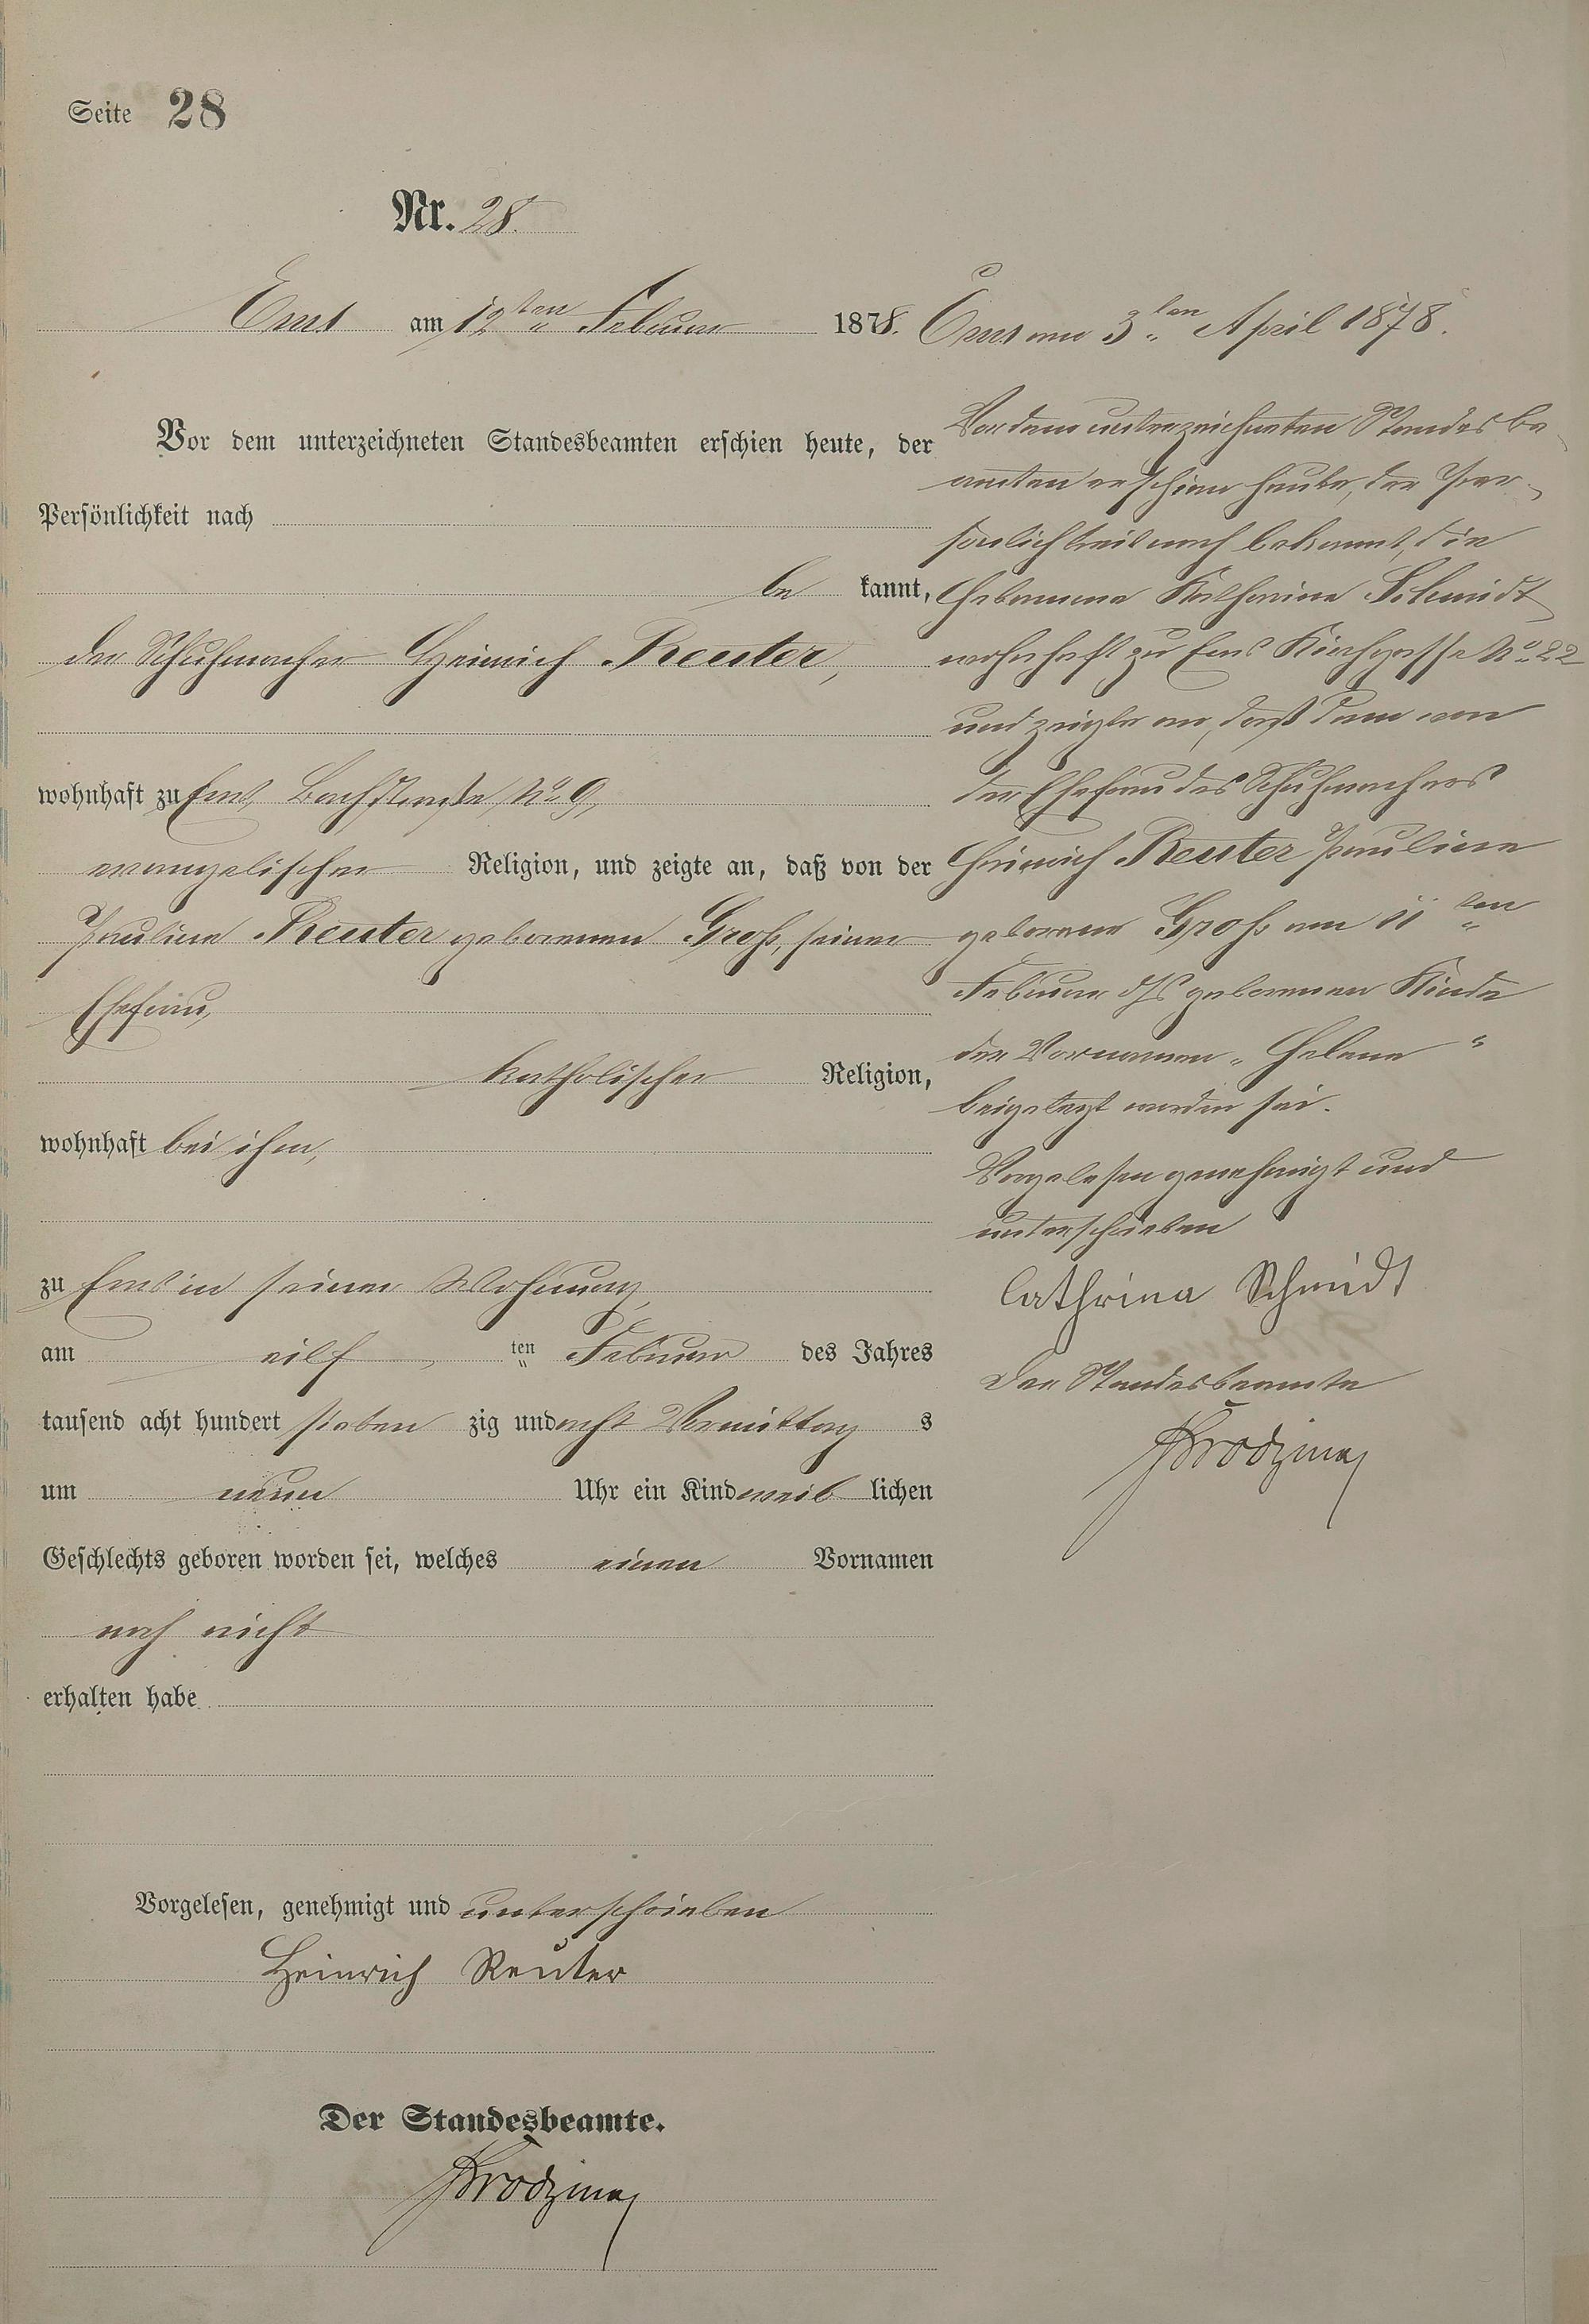 Seite 28
Nr. 28.
Ems am 12ten Februar 1878.
Vor dem unterzeichneten Standesbeamten erschien heute, der
Persönlichkeit nach
be kannt,
der Schuhmacher Heinrich Reuter,
wohnhaft zu Ems, Bachstraße No 9,
evangelischer Religion, und zeigte an, daß von der
Pauline Reuter geborenen Groß, seiner
Ehefrau,
katholischer Religion,
wohnhaft bei ihm,
zu Ems in seiner Wohnung,
am eilf ten Februar des Jahres
tausend acht hundert sieben zig und acht Vormittag s
um neun Uhr ein Kind weib lichen
Geschlechts geboren worden sei, welches einen Vornamen
noch nicht
erhalten habe
Vorgelesen, genehmigt und unterschrieben
Heinrich Reuter
Der Standesbeamte.
Ems am 3ten April 1878.
Vor dem unterzeichneten Standesbe
amten erschien heute, der Per-
sönlichkeit nach bekannt, die
Hebamme Katharine Schmidt
wohnhaft zu Ems Kirchgasse No 22
und zeigte an, daß dem von
der Ehefrau des Schuhmachers
Heinrich Reuter Pauline
geborene Groß am 11ten
Februar djs geborenen Kinde
der Vornamen „Helene“
beigelegt worden sei.
Vorgelesen genehmigt und
unterschrieben
Cathrina Schmidt
Der Standesbeamte